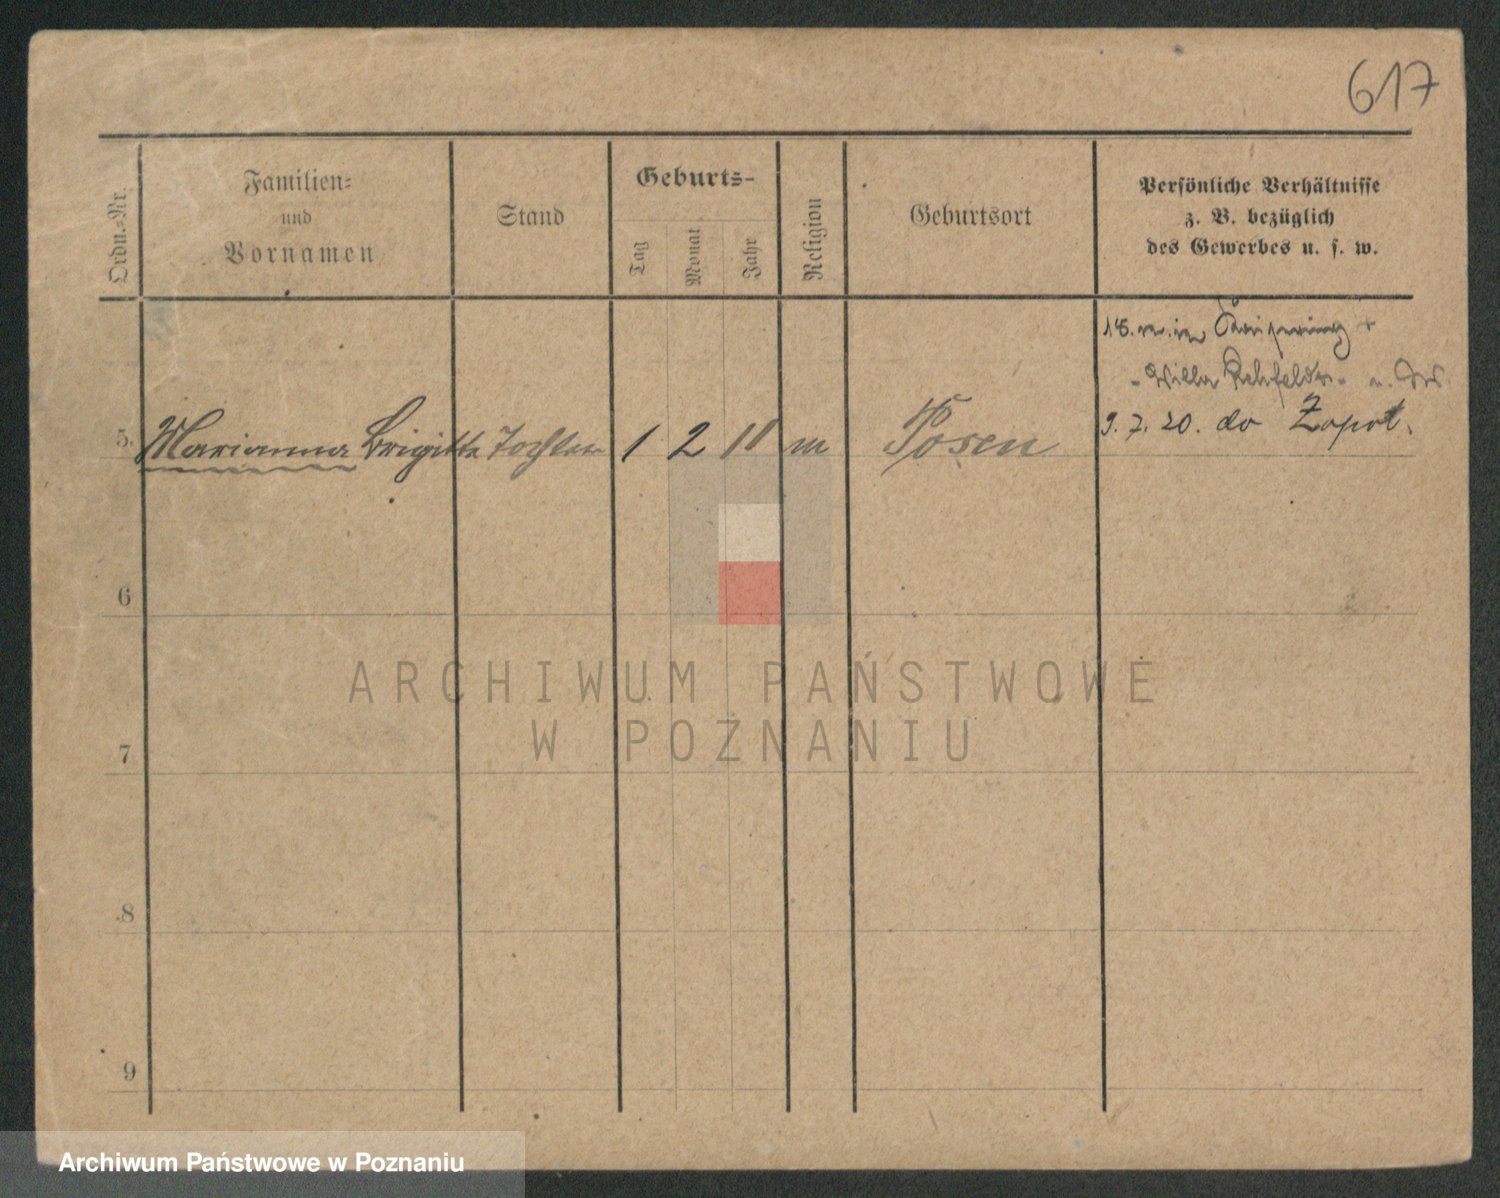 617
Ordn.-Nr.
Familien-
und
Vornamen
Stand
Geburts-
Tag
Monat
Jahr
Religion
Geburtsort
Persönliche Verhältnisse
z. B. bezüglich
des Gewerbes u. s. w.
Villa Rehfelde
5. Marianna Brigitte Tochter 1 2 11 m Posen 9. 7. 20. do Zopot.
6
7
8
9
ARCHIWUM PAŃSTWOWE
W POZNANIU
Archiwum Państwowe w Poznaniu